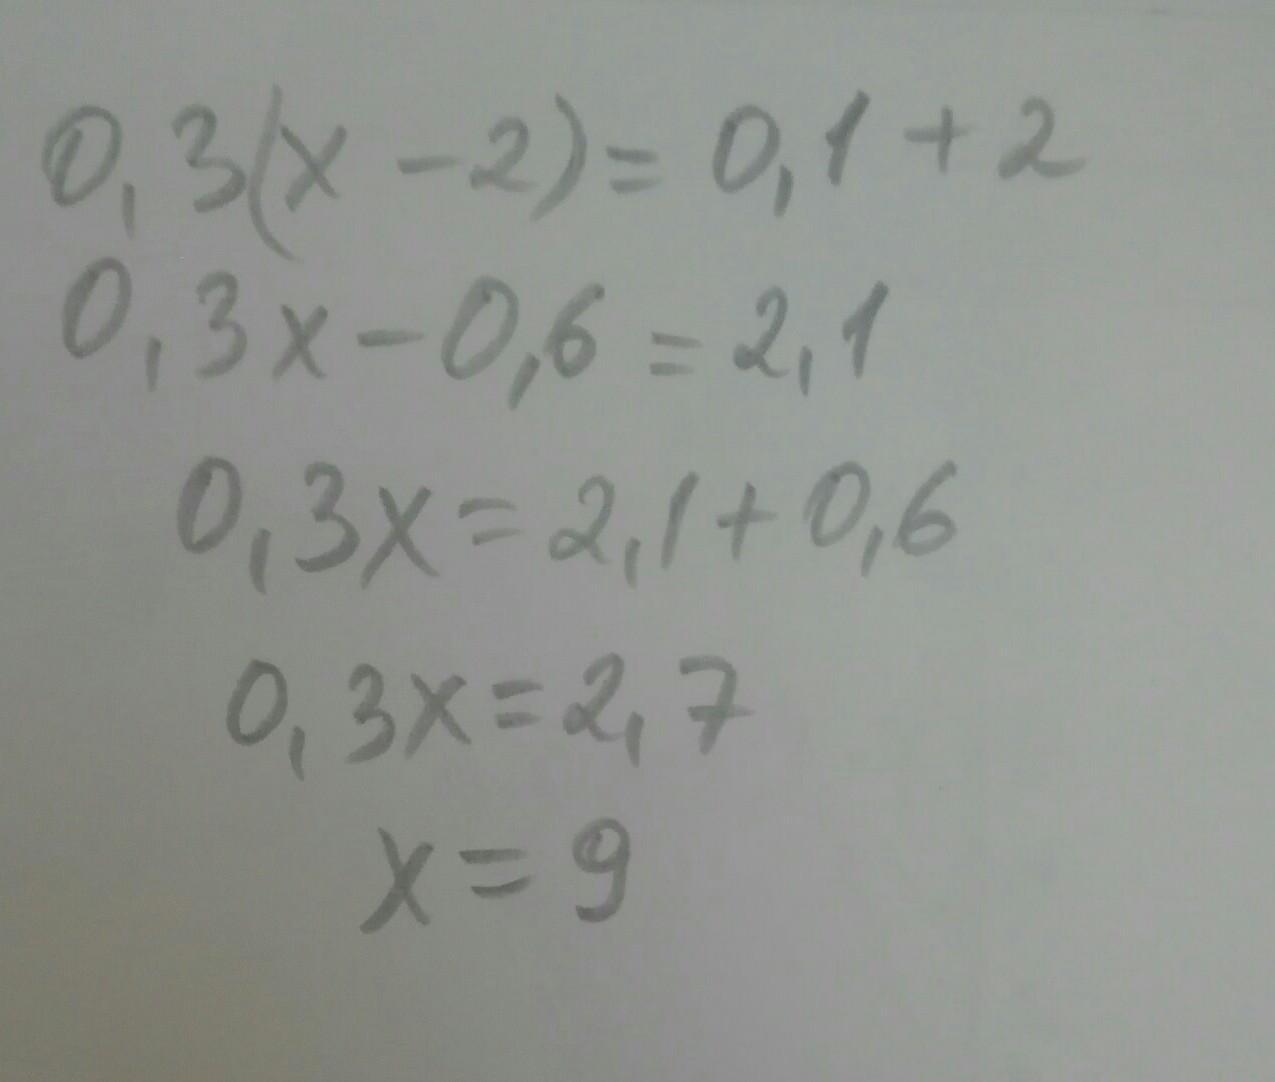 0,3(x-2)=0,1+2
0,3x-0,6=2,1
0,3x=2,1+0,6
0,3x=2,7
x=9